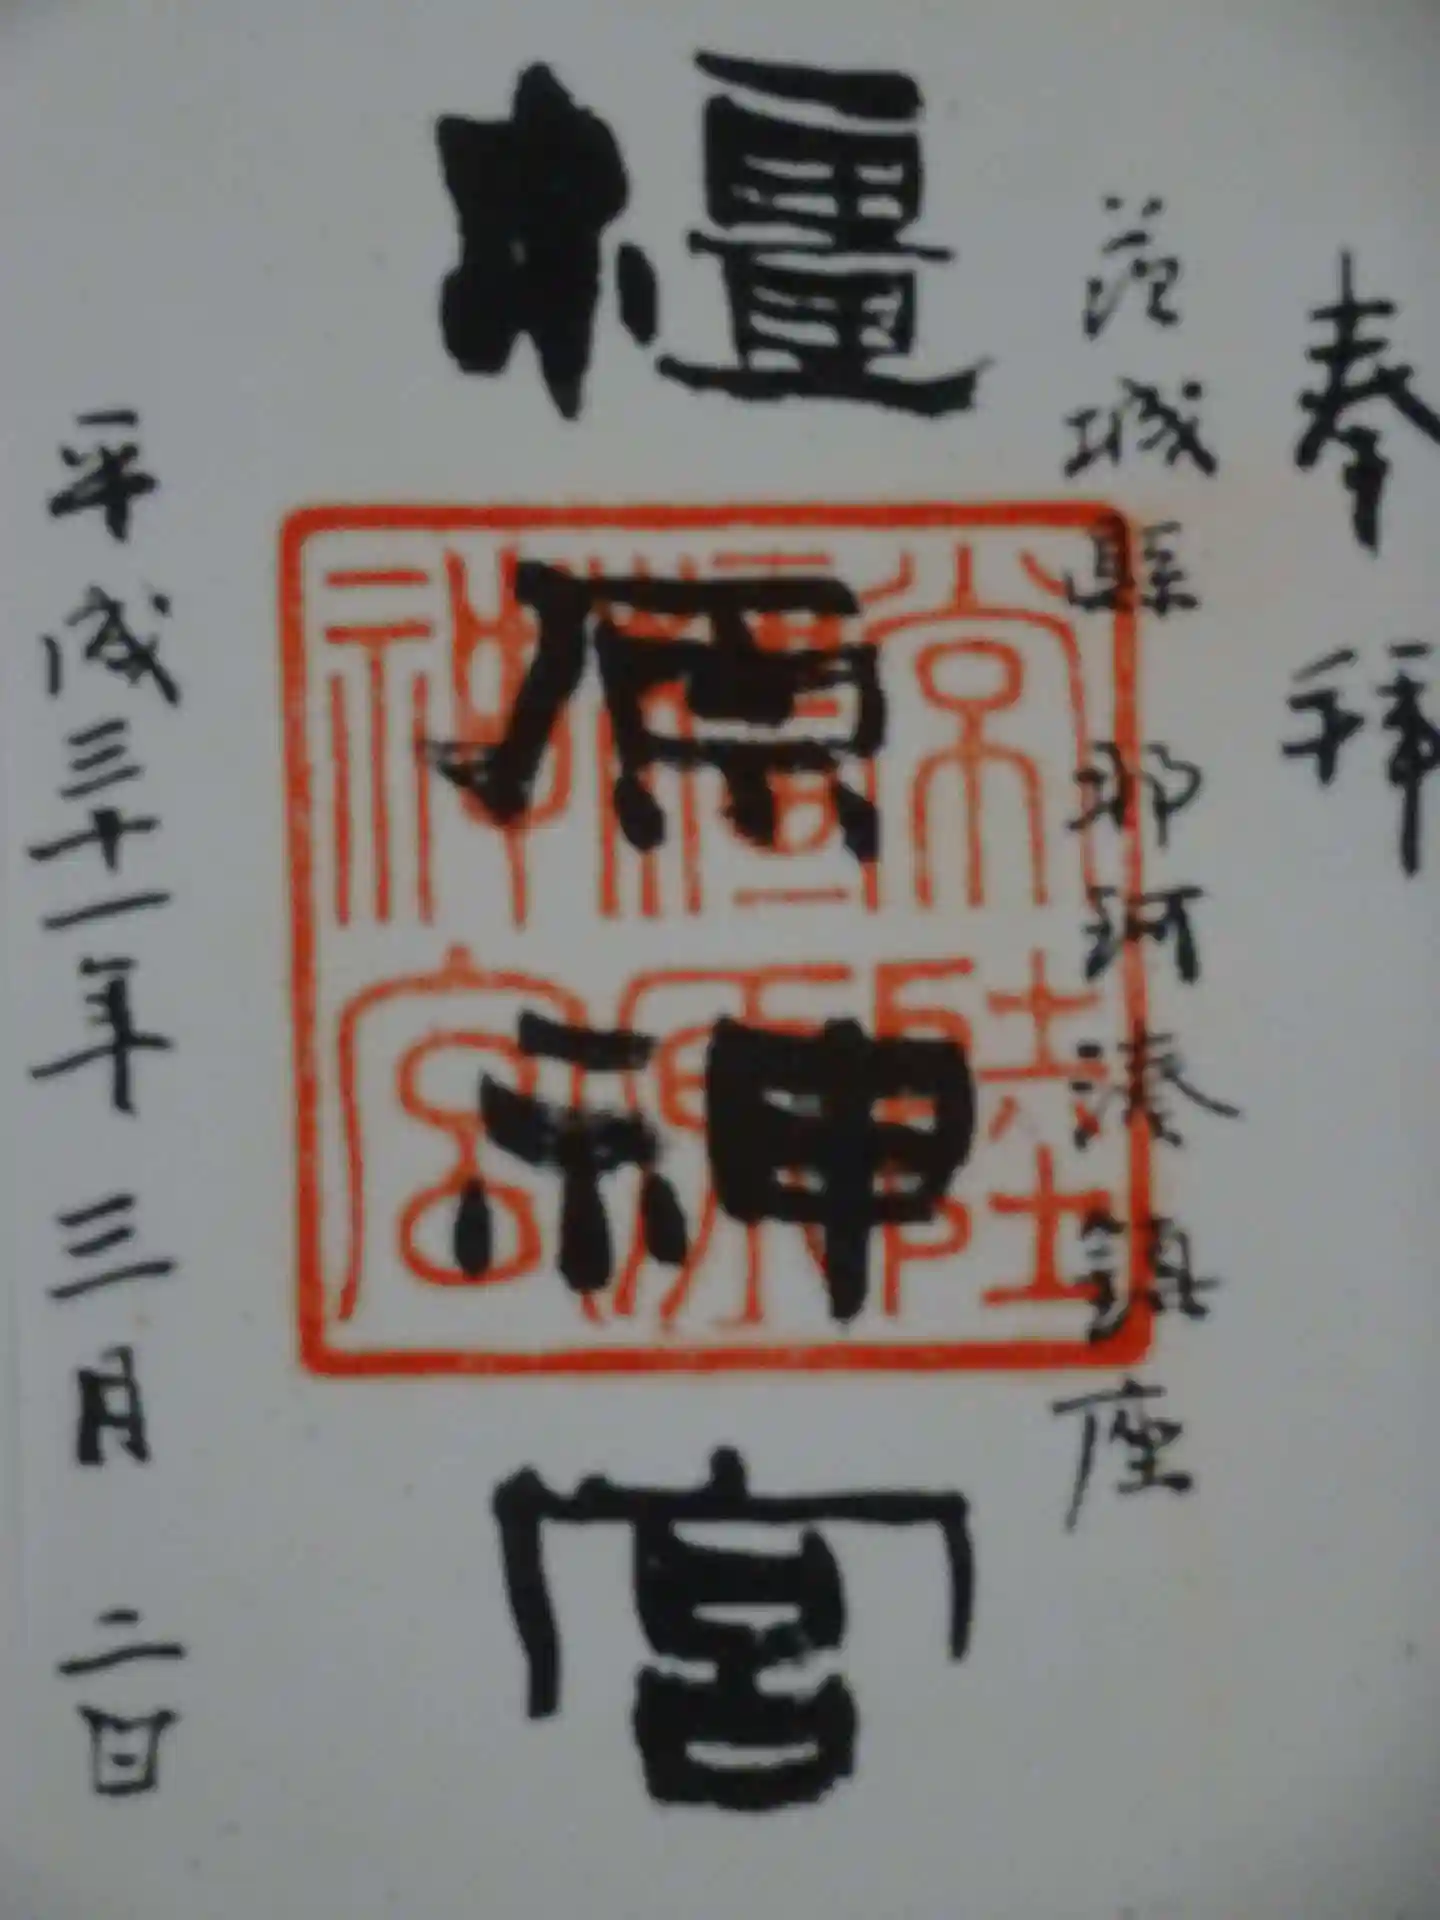 奉拝
茨城縣那珂湊鎮座
橿原神宮
常陸橿原神宮
平成三十一年三月二日